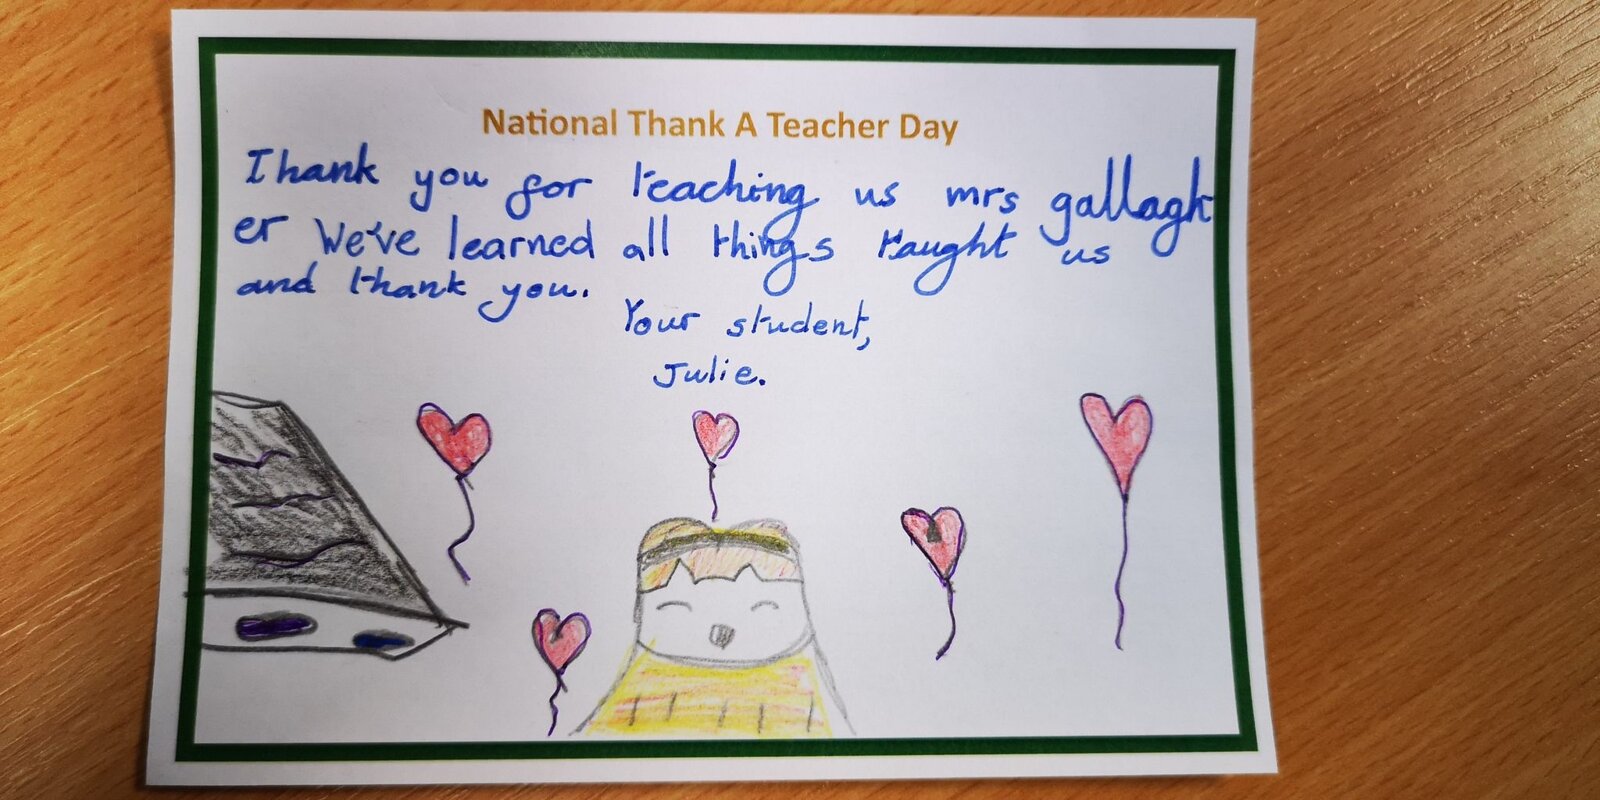 National Thank A Teacher Day
Thank you for teaching us mrs gallagh
er We've learned all things taught us
and thank you.
Your student,
Julie.